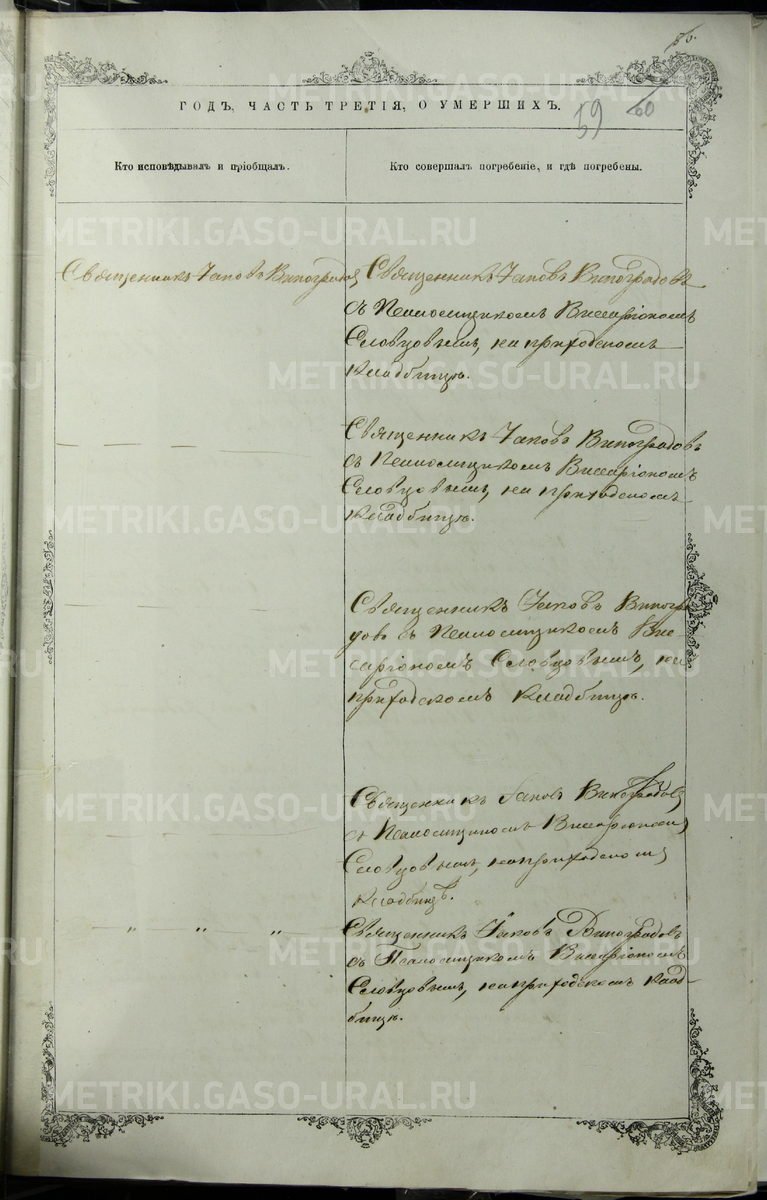 59
60
ГОДЪ, ЧАСТЬ ТРЕТІЯ, О УМЕРШИХЪ.
Кто исповѣдывалъ и пріобщалъ.
Кто совершалъ погребеніе, и гдѣ погребены.
Священникъ Іаковъ Виноградовъ
Священникъ Іаковъ Виноградовъ
съ Псаломщикомъ Виссаріономъ
Словцовымъ, на приходскомъ
Кладбищѣ.
Священникъ Іаковъ Виноградовъ
съ Псаломщикомъ Виссаріономъ
Словцовымъ, на приходскомъ
Кладбищѣ.
Священникъ Іаковъ Виногра
довъ съ Псаломщикомъ Вис-
саріономъ Словцовымъ, на
приходскомъ Кладбищѣ.
Священникъ Іаковъ Виноградовъ
съ Псаломщикомъ Виссаріономъ
Словцовымъ, на приходскомъ
Кладбищѣ.
" " "
Священникъ Іаковъ Виноградовъ
съ Псаломщикомъ Виссаріономъ
Словцовымъ, на приходскомъ Клад-
бищѣ.
METRIKI.GASO-URAL.RU